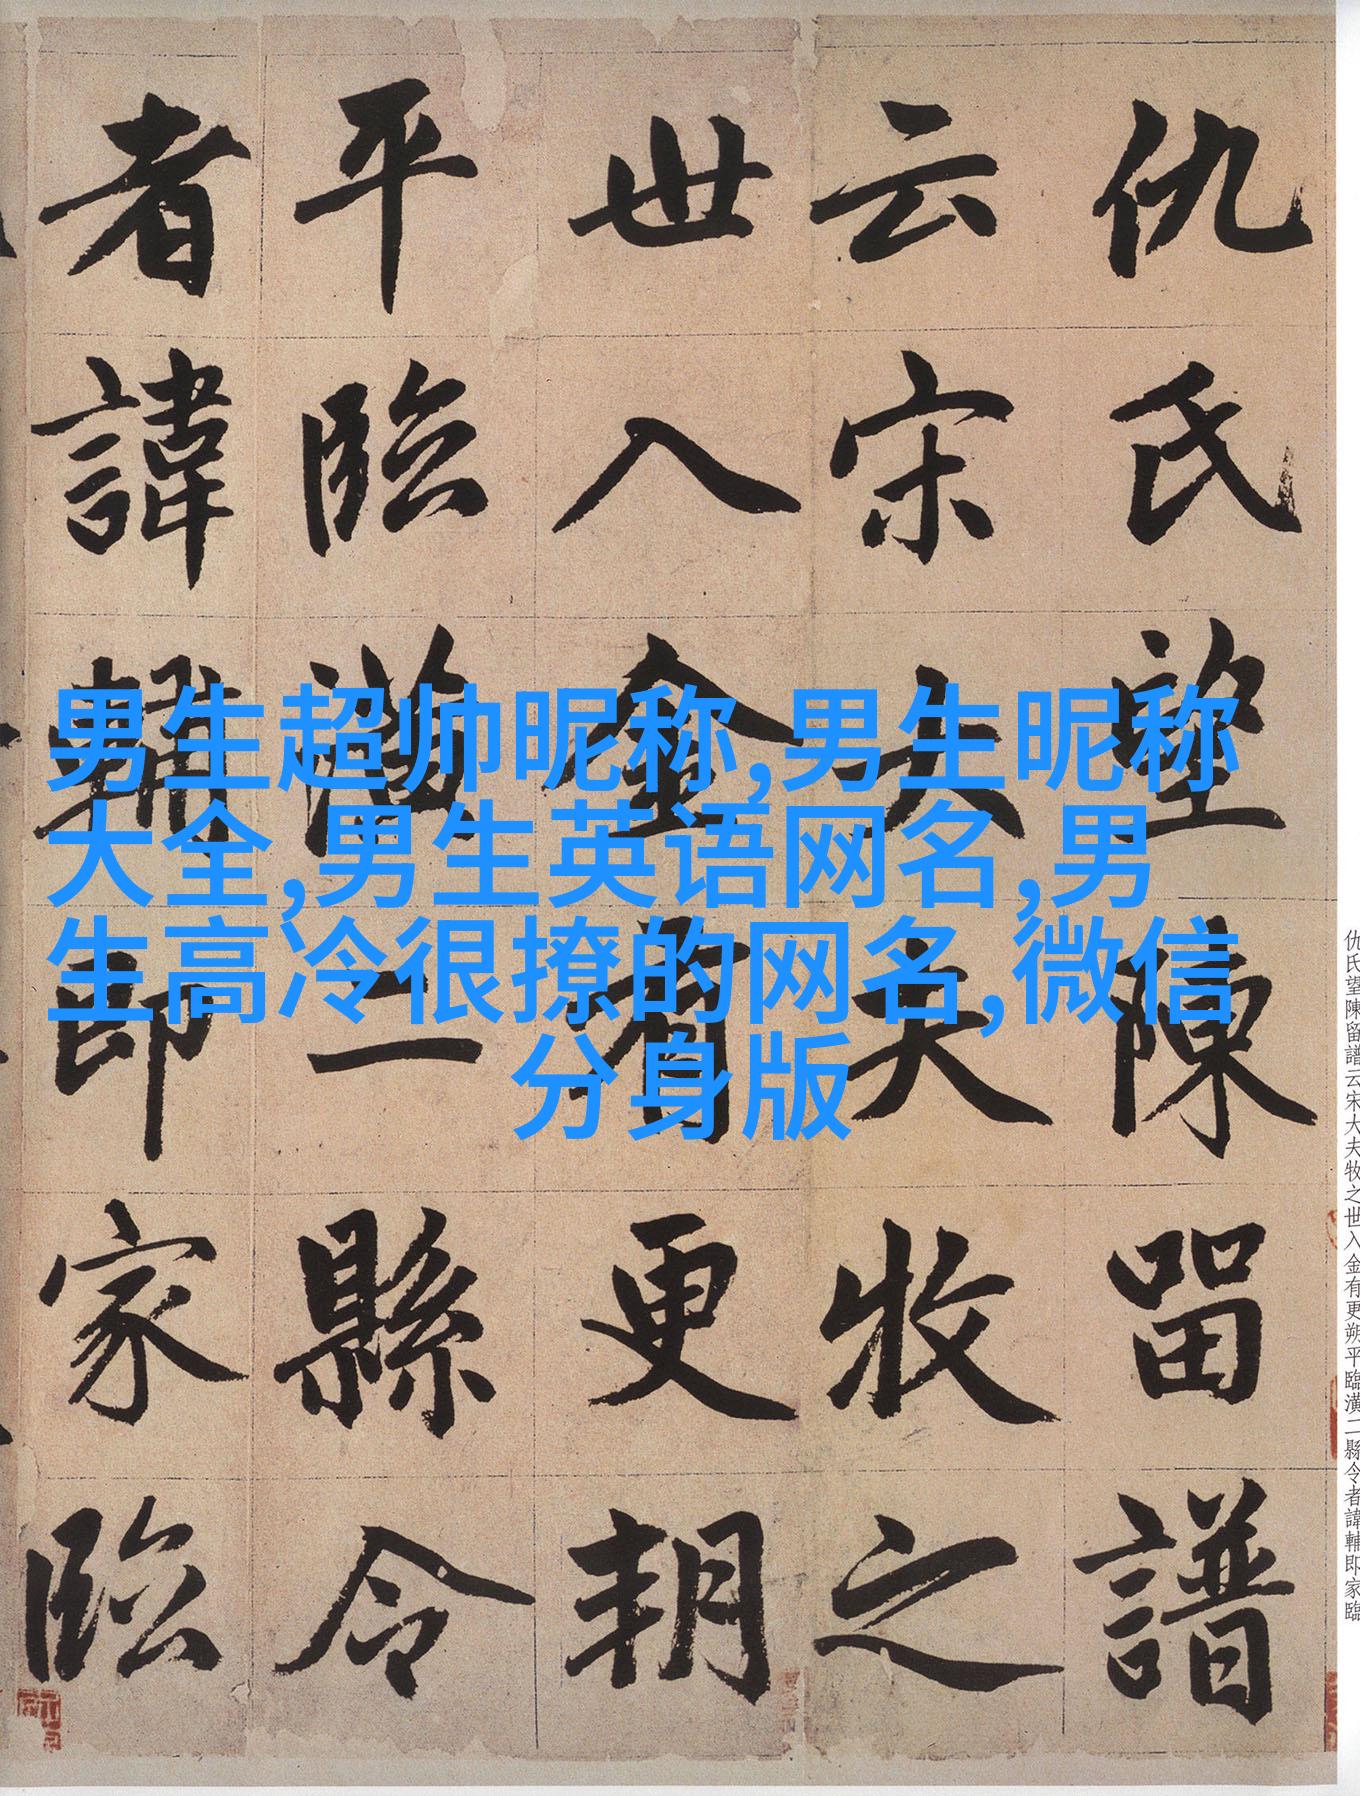 仇氏望陳留譜
云宋大夫牧之
世入金有更朔
平臨潢二縣令
者諱輔即家臨
男生超帅昵称,男生昵称
大全,男生英语网名,男
生高冷很撩的网名,微信
分身版
仇氏望陳留譜云宋大夫牧之世入金有更朔平臨潢二縣令者諱輔即家臨